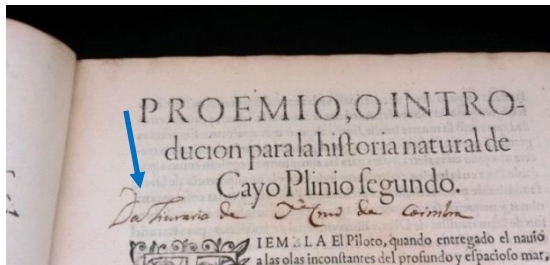 PROEMIO, O INTRO-
ducion para la hiſtoria natural de
Cayo Plinio ſegundo.
Da liuraria de de Coimbra
IEMBLA El Piloto, quando entregado el nauio
a las olas inconſtantes del profundo y eſpacioſo mar,